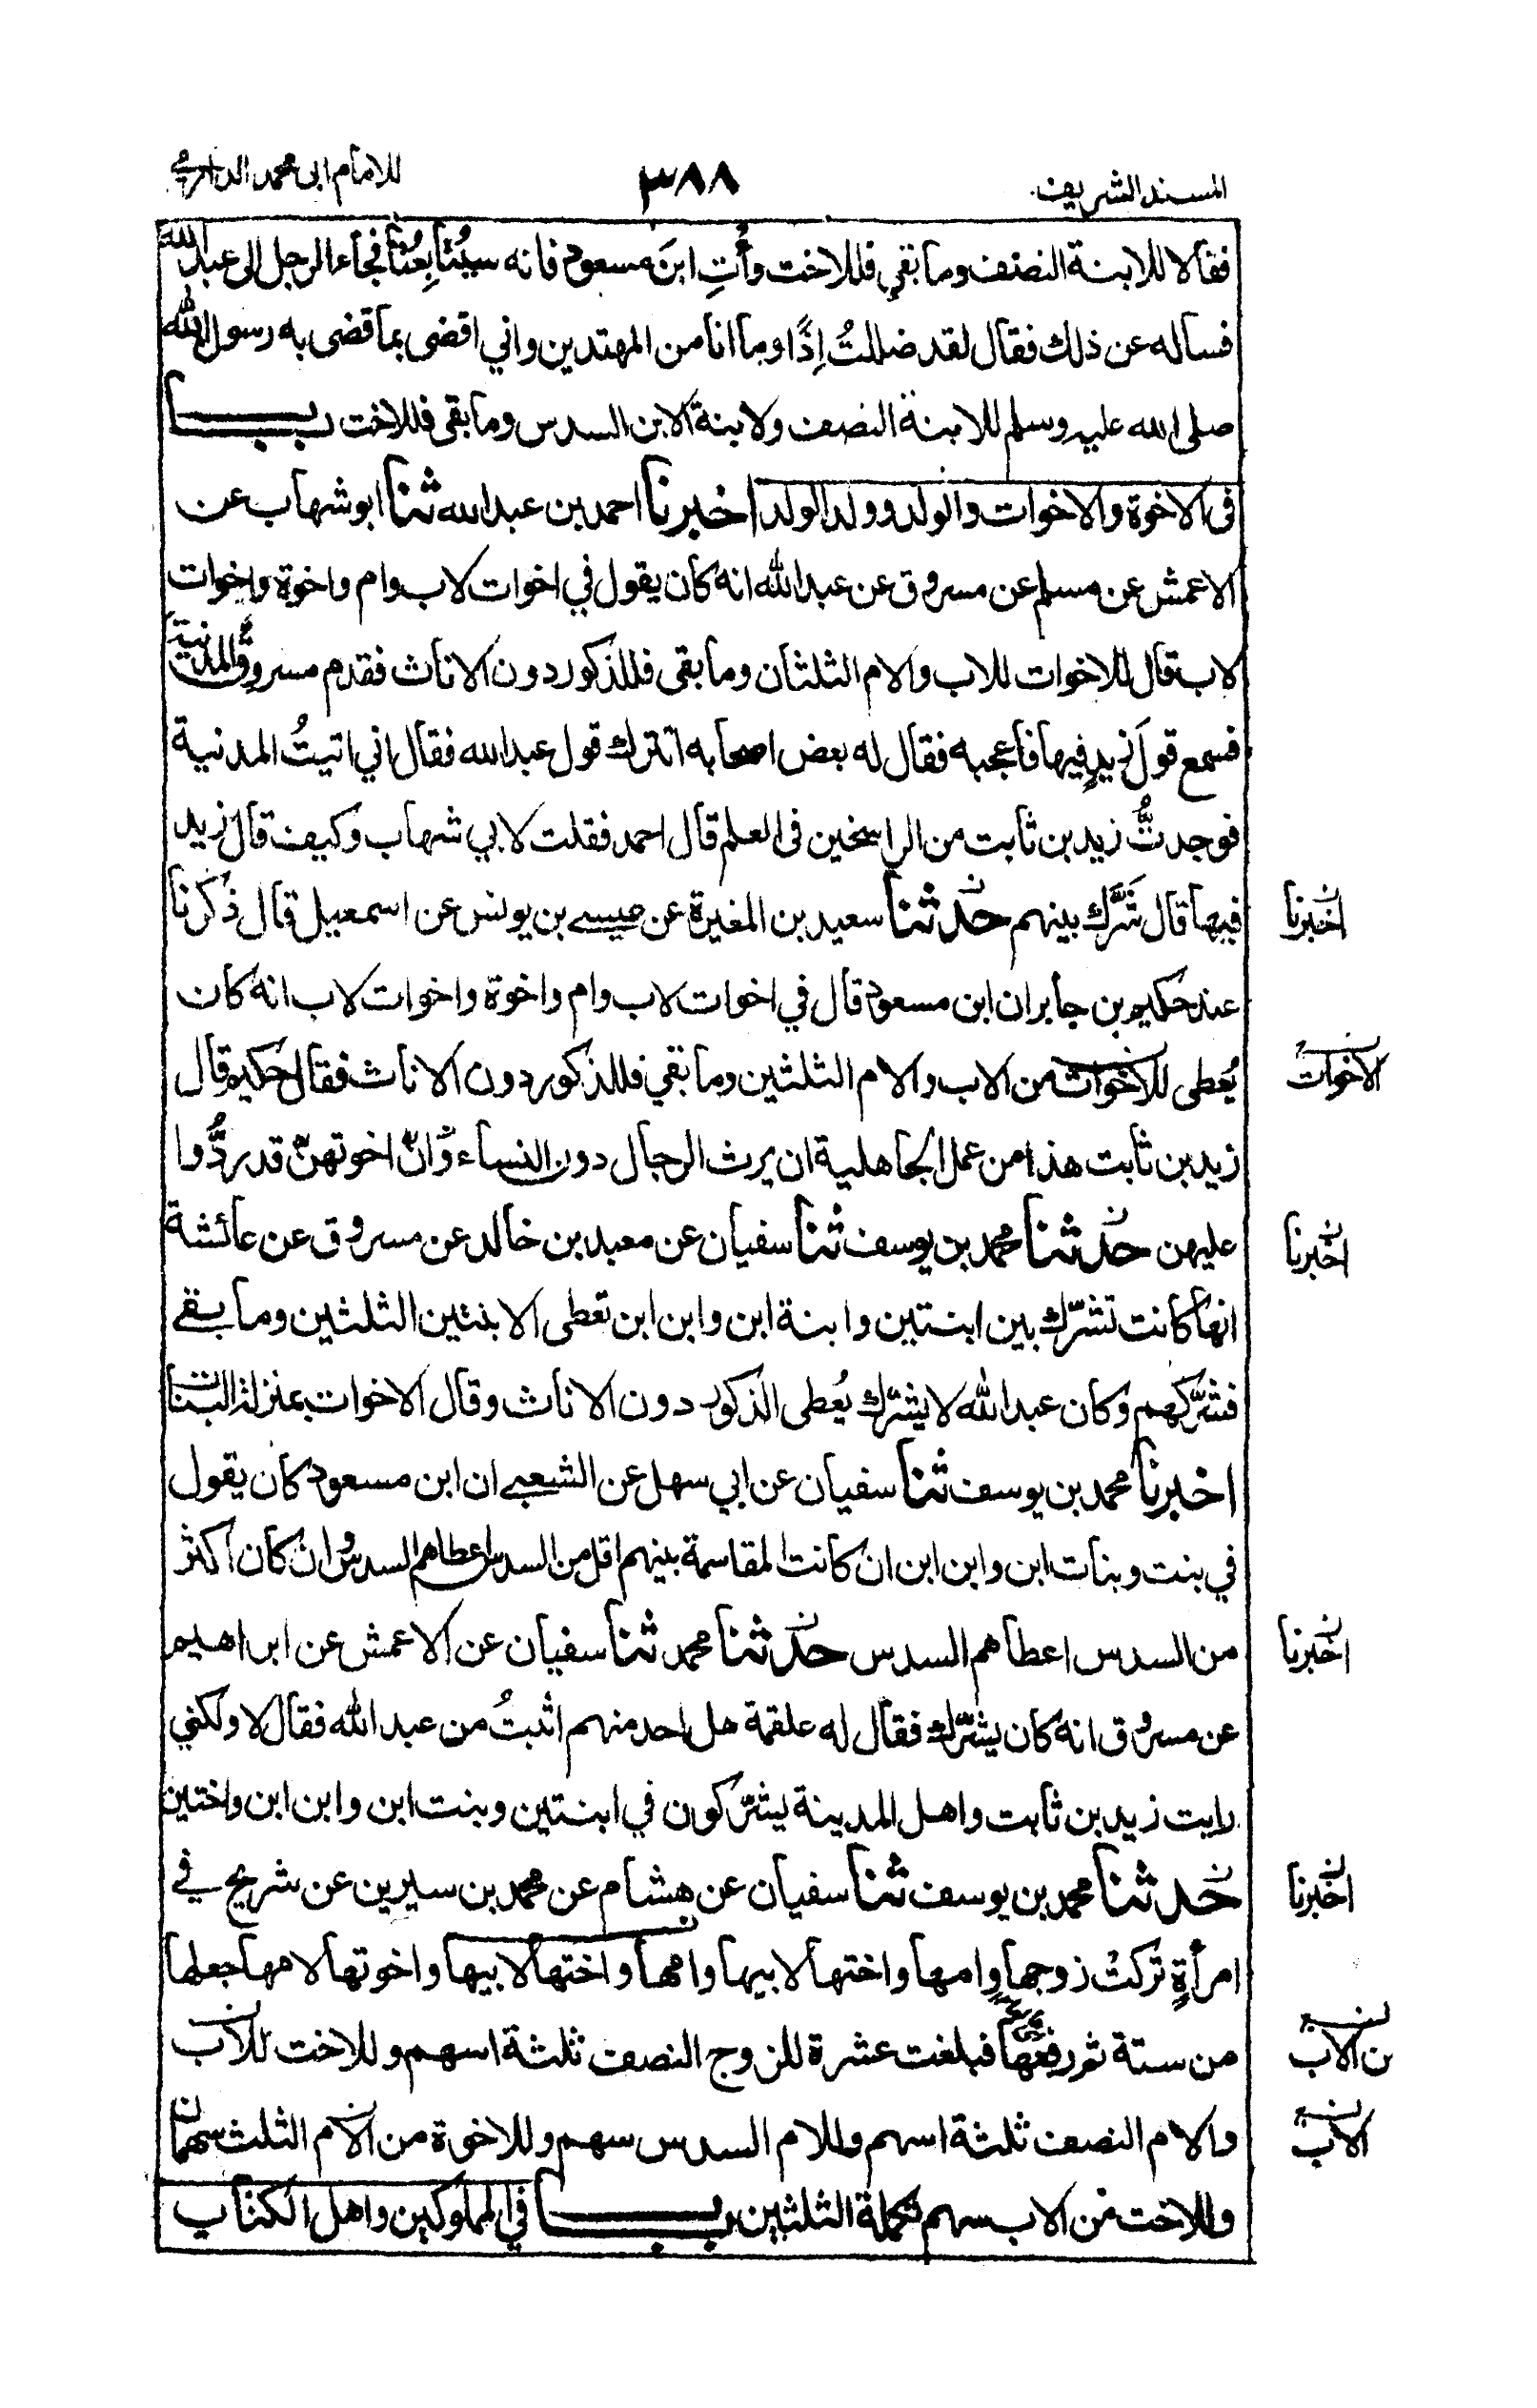 المسند الشريف ٣٨٨ للامام ابى محمد الدارمي
فقالا للابنة النصف وما بقي فللاخت وأتِ ابنَ مسعود فانه سيُتابِعُنا فجاء الرجل الى عبد الله
فساله عن ذلك فقال لقد ضللتُ اِذًا وما انا من المهتدين واني اقضى بما قضى به رسول الله
صلى الله عليه وسلم للابنة النصف ولابنة الابن السدس وما بقى فللاخت باب
فى الاخوة والاخوات والولد وولد الولد اخبرنا احمد بن عبد الله ثنا ابو شهاب عن
الاعمش عن مسلم عن مسروق عن عبد الله انه كان يقول في اخوات لاب وام واخوة واخوات
لاب قال للاخوات للاب والام الثلثان وما بقى فللذكور دون الاناث فقدم مسروقٌ المدنية
فسمع قولَ زيدٍ فيها فاعجبه فقال له بعض اصحابه اتترك قول عبد الله فقال اني اتيتُ المدنية
فوجدتُّ زيد بن ثابت من الراسخين فى العلم قال احمد فقلت لابي شهاب وكيف قال زيد
فيها قال شَرَّك بينهم حدثنا سعيد بن المغيرة عن عيسے بن يونس عن اسمعيل قال ذكرنا
اخبرنا
عند حكيم بن جابر ان ابن مسعود قال في اخوات لاب وام واخوة واخوات لاب انه كان
يُعطى للاخوات من الاب والام الثلثين وما بقي فللذكور دون الاناث فقال حكيم قال
الاخوات
زيد بن ثابت هذا من عمل الجاهلية ان يرث الرجال دون النساء وانّ اخوتهنّ قد ردُّوا
عليهن حدثنا محمد بن يوسف ثنا سفيان عن معبد بن خالد عن مسروق عن عائشة
اخبرنا
انها كانت تشرّك بين ابنتين وابنة ابن وابن ابن تعطى الابنتين الثلثين وما بقے
فشرّكهم وكان عبد الله لا يشرّك يُعطى الذكور دون الاناث وقال الاخوات بمنزلة البنات
اخبرنا محمد بن يوسف ثنا سفيان عن ابي سهل عن الشعبے ان ابن مسعود كان يقول
في بنت وبنات ابن وابن ابن ان كانت المقاسمة بينهم اقل من السدس اعطاهم السدس وان كان اكثر
من السدس اعطاهم السدس حدثنا محمد ثنا سفيان عن الاعمش عن ابراهيم
اخبرنا
عن مسروق انه كان يشرّك فقال له علقمة هل احد منهم اثبتُ من عبد الله فقال لا ولكني
رايت زيد بن ثابت واهل المدينة يشرّكون في ابنتين وبنت ابن وابن ابن واختين
حدثنا محمد بن يوسف ثنا سفيان عن هشام عن محمد بن سيرين عن شريح في
اخبرنا
امرأةٍ تركتْ زوجها وامها واختها لابيها وامها واختها لابيها واخوتها لامها جعلها
من ستة ثم رفعها فبلغت عشرة للزوج النصف ثلثة اسهم وللاخت للاب
من الاب
والام النصف ثلثة اسهم وللام السدس سهم وللاخوة من الام الثلث سهمان
الاب
وللاخت من الاب سهم تكملة الثلثين باب في المملوكين واهل الكتاب